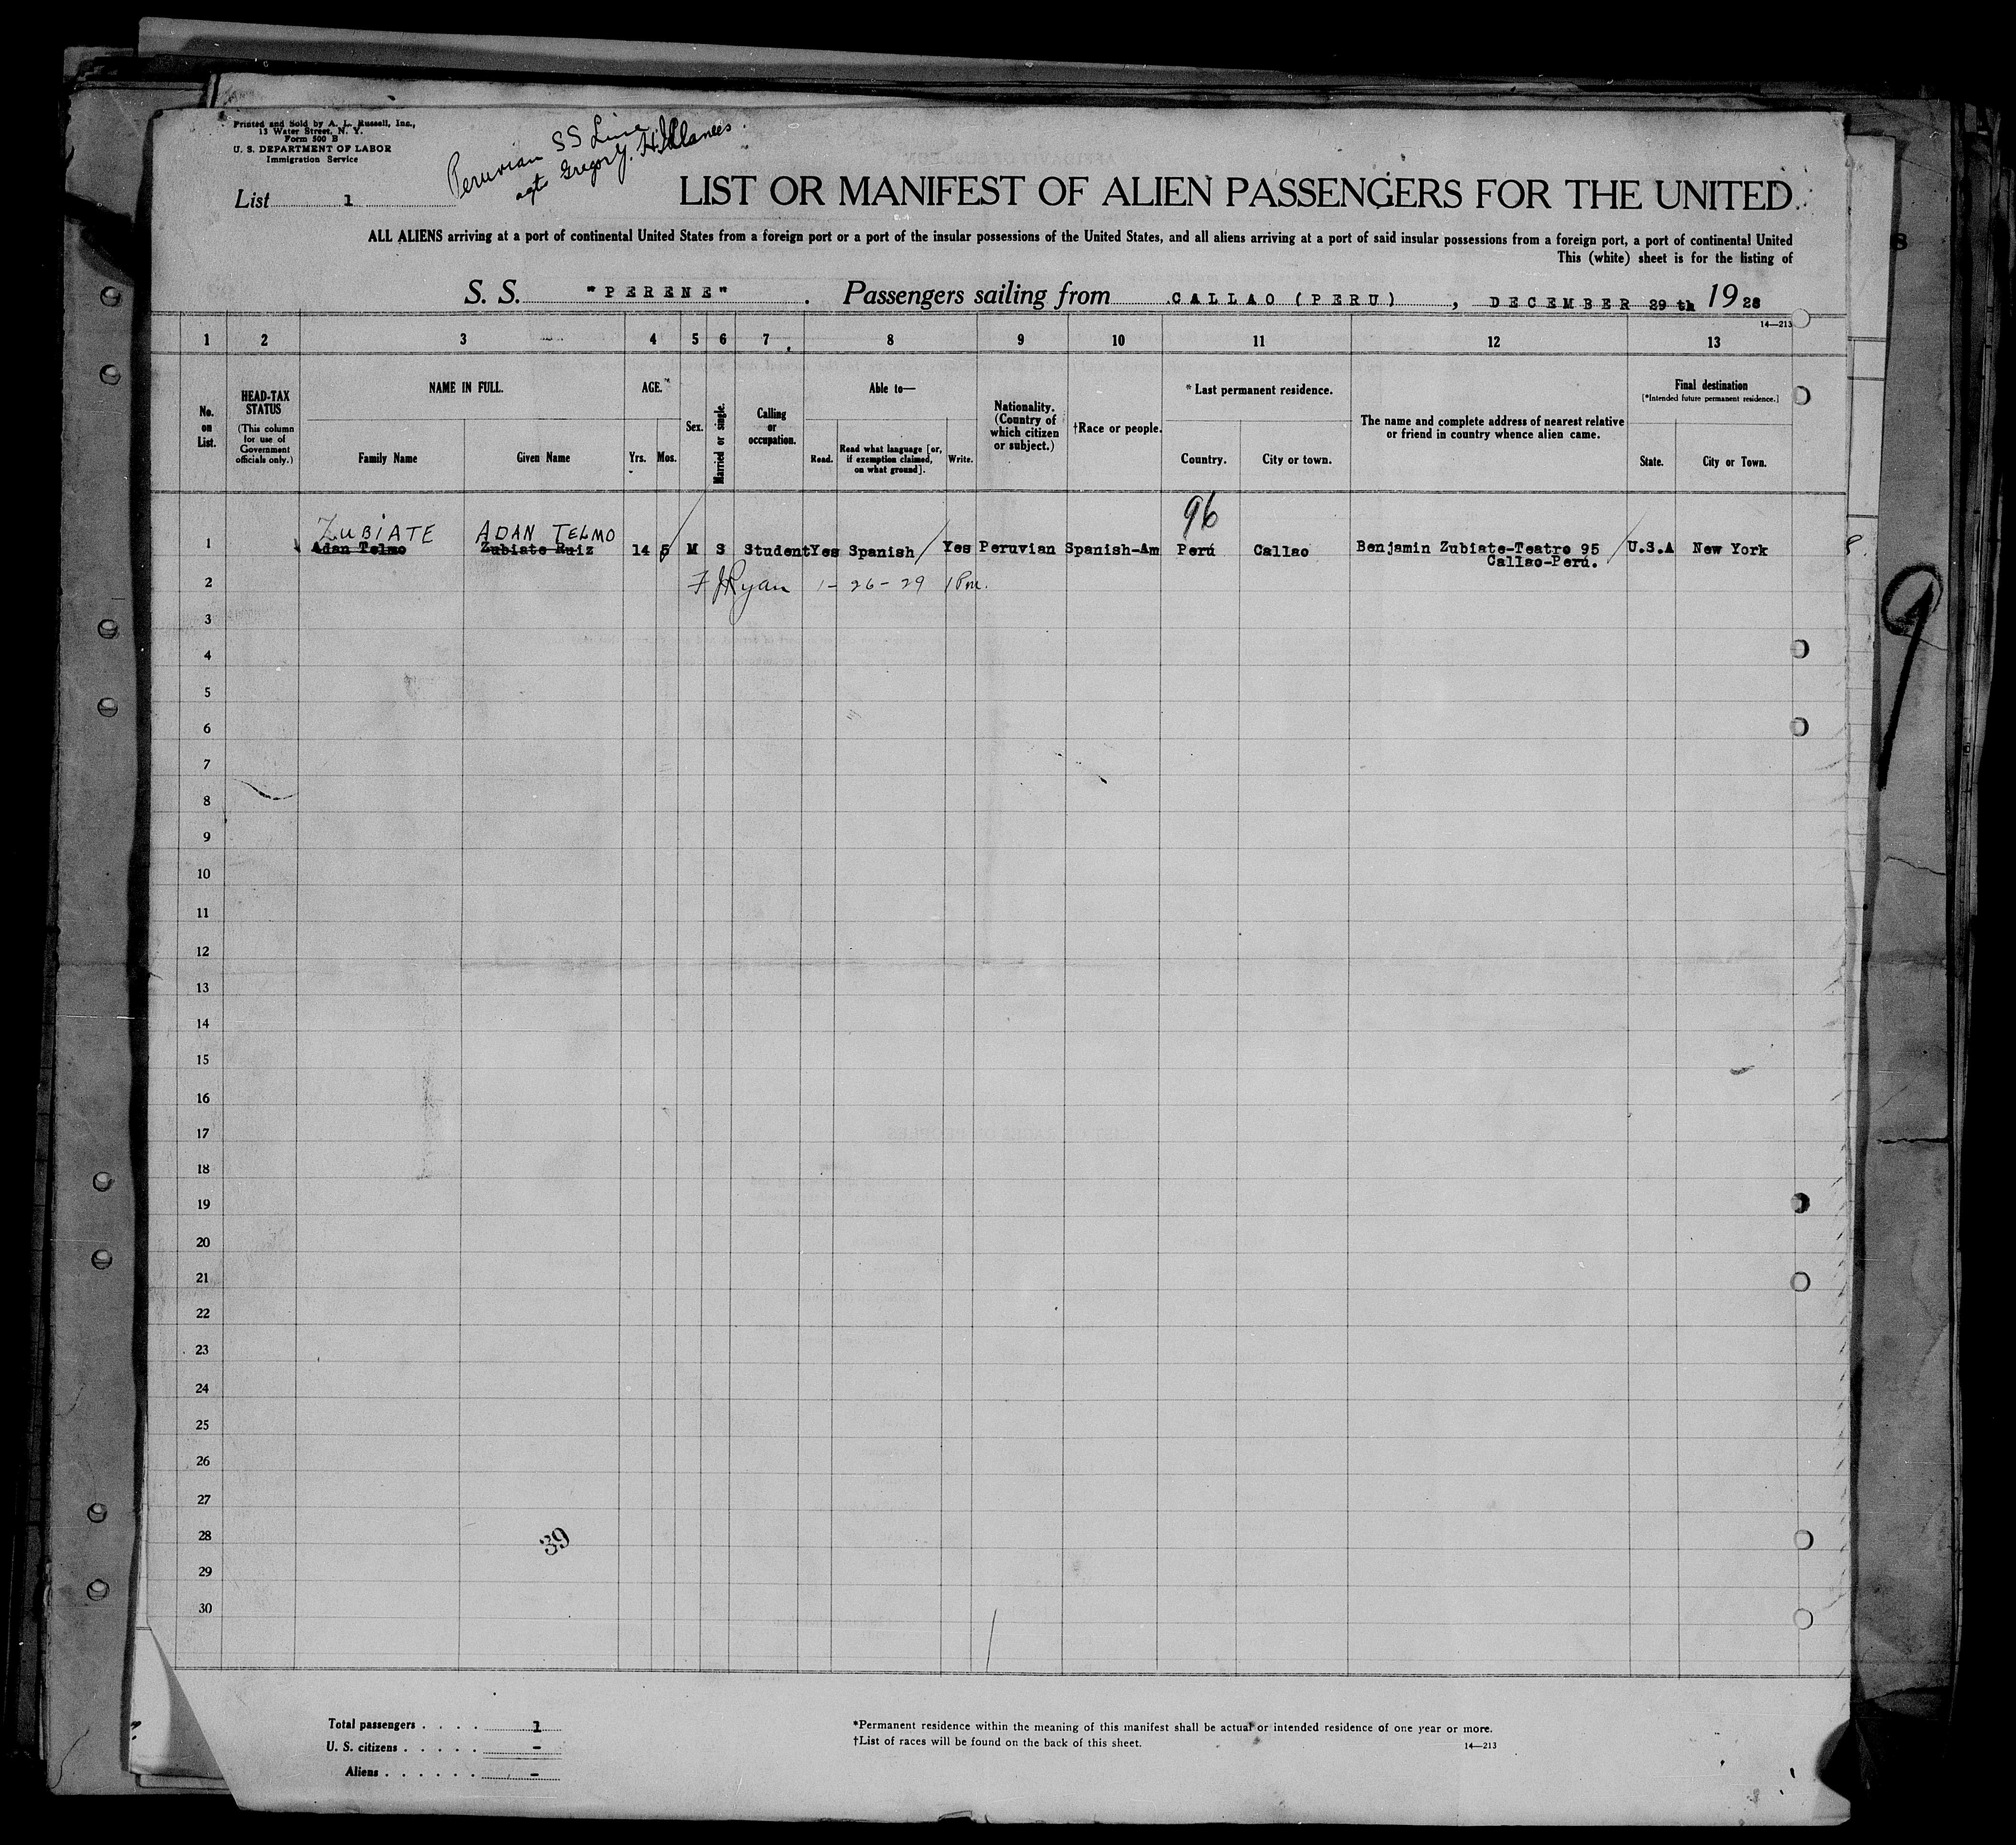 Printed and Sold by A. L. Russell, Inc.,
13 Water Street, N. Y.
Form 500 B
U. S. DEPARTMENT OF LABOR
Immigration Service
Peruvian SS Line
agts Gregory. H.
List 1
LIST OR MANIFEST OF ALIEN PASSENGERS FOR THE UNITED
ALL ALIENS arriving at a port of continental United States from a foreign port or a port of the insular possessions of the United States, and all aliens arriving at a port of said insular possessions from a foreign port, a port of continental United
This (white) sheet is for the listing of
S. S. "PERENE". Passengers sailing from CALLAO (PERU), DECEMBER 29 th 1928
14—213
1 2 3 4 5 6 7 8 9 10 11 12 13
No. on List.
HEAD-TAX STATUS
(This column for use of Government officials only.)
NAME IN FULL.
Family Name
Given Name
AGE.
Yrs. Mos.
Sex.
Married or single.
Calling or occupation.
Able to—
Read.
Read what language [or, if exemption claimed, on what ground].
Write.
Nationality. (Country of which citizen or subject.)
†Race or people.
*Last permanent residence.
Country.
City or town.
The name and complete address of nearest relative or friend in country whence alien came.
Final destination
[*Intended future permanent residence.]
State.
City or Town.
96
ZUBIATE ADAN TELMO
1 Adan Telmo Zubiate Ruiz 14 5 M S Student Yes Spanish Yes Peruvian Spanish-Am Perú Callao Benjamin Zubiate-Teatro 95 U.S.A New York
Callao-Perú.
2 F J Ryan 1-26-29 1 Pm.
3
4
5
6
7
8
9
10
11
12
13
14
15
16
17
18
19
20
21
22
23
24
25
26
27
28
29
30
39
9
Total passengers . . . . 1
U. S. citizens . . . . . -
Aliens . . . . . . -
*Permanent residence within the meaning of this manifest shall be actual or intended residence of one year or more.
†List of races will be found on the back of this sheet.
14—213